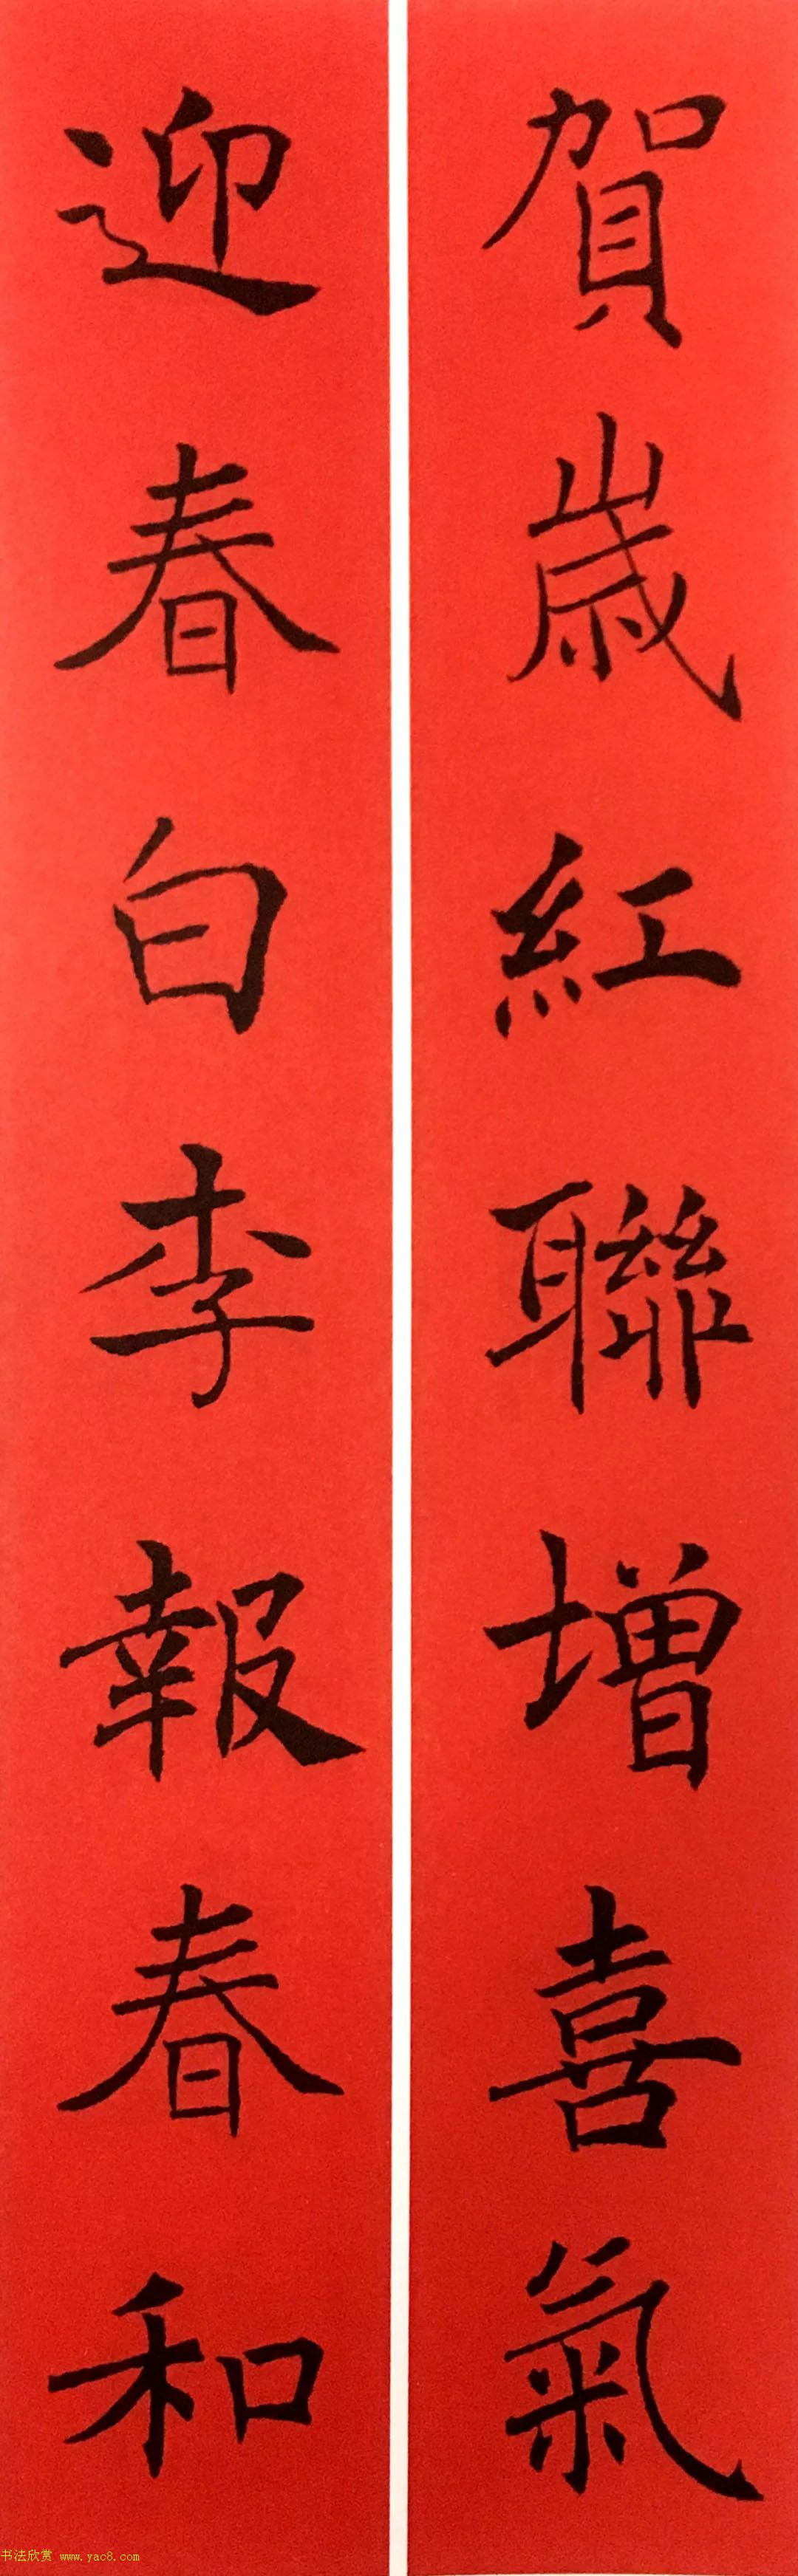 賀歲紅聯增喜氣
迎春白李報春和
书法欣赏 www.yac8.com